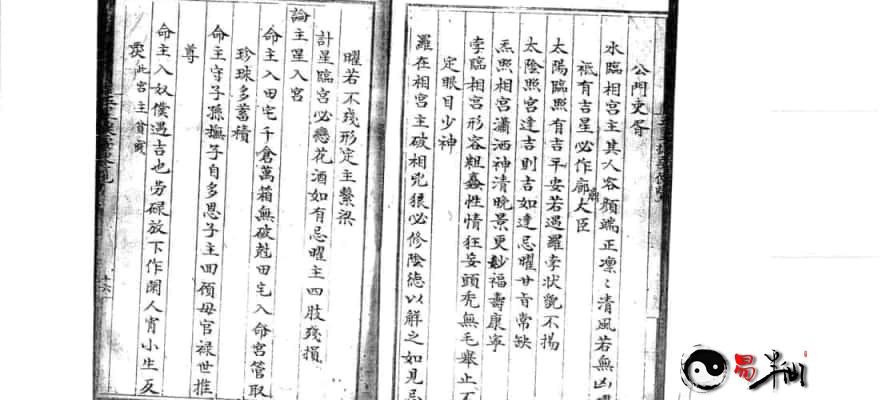 公門吏胥
水臨相宮主其人容顏端正凛〻清風若無凶
祗有吉星必作廊廟大臣
太陽臨照有吉平安若遇羅孛狀貌不揚
太陰照宮逢吉則吉如逢忌曜廿盲常缺
炁照相宮瀟洒神清晚景更妙福壽康寧
孛臨相宮形容粗蠢性情狂妄頭禿無毛舉止不
定眼目少神
羅在相宮主破相兇狠必修陰德以解之如見忌
曜若不殘形定主繫梁
計星臨宮必戀花酒如有忌曜主四肢殘損
論主星入宮
命主入田宅千倉萬箱無破尅田宅入命宮管取
珍珠多蓄積
命主守子孫撫子自多恩子主回頋母官祿世推
尊
命主入奴僕遇吉也劳碌放下作閑人宵小生反
此宮主首
十六
易半仙